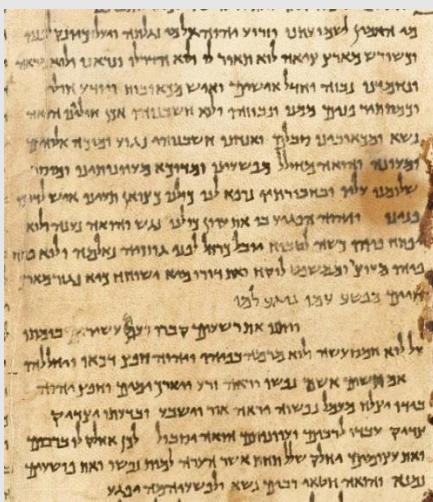 מי האמין לשמועתנו וזרוע יהוה אל מי נגלתה ויעל כיונק לפניו
וכשורש מארץ ציאה לוא תאור לו ולוא הדר לו ונראנו ולוא מראה
ונחמדנו נבזה וחדל אישים ואיש מכאובות ויודע חולי
וכמסתיר פנים ממנו ונבוזהו ולוא חשבנוהו אכן חוליינו הואה
נשא ומכאובינו סבלם ואנחנו חשבנוהו נגוע ומוכה אלוהים
ומעונה והואה מחולל מפשעינו ומדוכא מעוונותינו ומוסר
שלומנו עליו ובחבורתיו נרפא לנו כולנו כצואן תעינו איש לדרכו
פנינו ויהוה הפגיע בו את עוון כולנו נגש והואה נענה ולוא
פתח פיהו כשה לטבוח יובל כרחל לפני גוזזיה נאלמה ולוא פתח
פיהו מעוצר וממשפט לוקח ואת דורו מיא ישוחח כיא נגזר מארץ
חיים מפשע עמו נוגע למו
ויתנו את רשעים קברו ועם עשיר בומתו
על לוא חמס עשה ולוא מרמה בפיהו ויהוה חפץ דכאו ויחללהו
אם תשים אשם נפשו יראה זרע ויארך ימים וחפץ יהוה
בידו יצלח מעמל נפשוה יראה אור וישבע ובדעתו יצדיק
צדיק עבדו לרבים ועוונותם הואה יסבול לכן אחלק לו ברבים
ואת עצומים יחלק שלל תחת אשר הערה למות נפשו ואת פושעים
נמנה והואה חטאי רבים נשא ולפשעיהמה יפגע